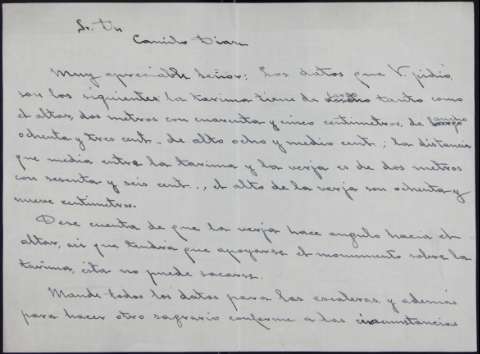 S. Dn
Camilo Diaz
Muy apreciable Señor: Los datos que V. pidió,
son los siguientes la tarima tiene de ancho tanto como
el altar, dos metros con cuarenta y cinco centimetros, de largo
ochenta y tres cent. de alto ocho y medio cent.; la distancia
que media entre la tarima y la verja es de dos metros
con sesenta y seis cent., el alto de la verja son ochenta y
nueve centimetros.
Dese cuenta de que la verja hace angulo hacia el
altar, asi que tendra que apoyarse el monumento sobre la
tarima, esta no puede sacarse.
Mande todos los datos para las escaleras y además
para hacer otro sagrario conforme a las circunstancias